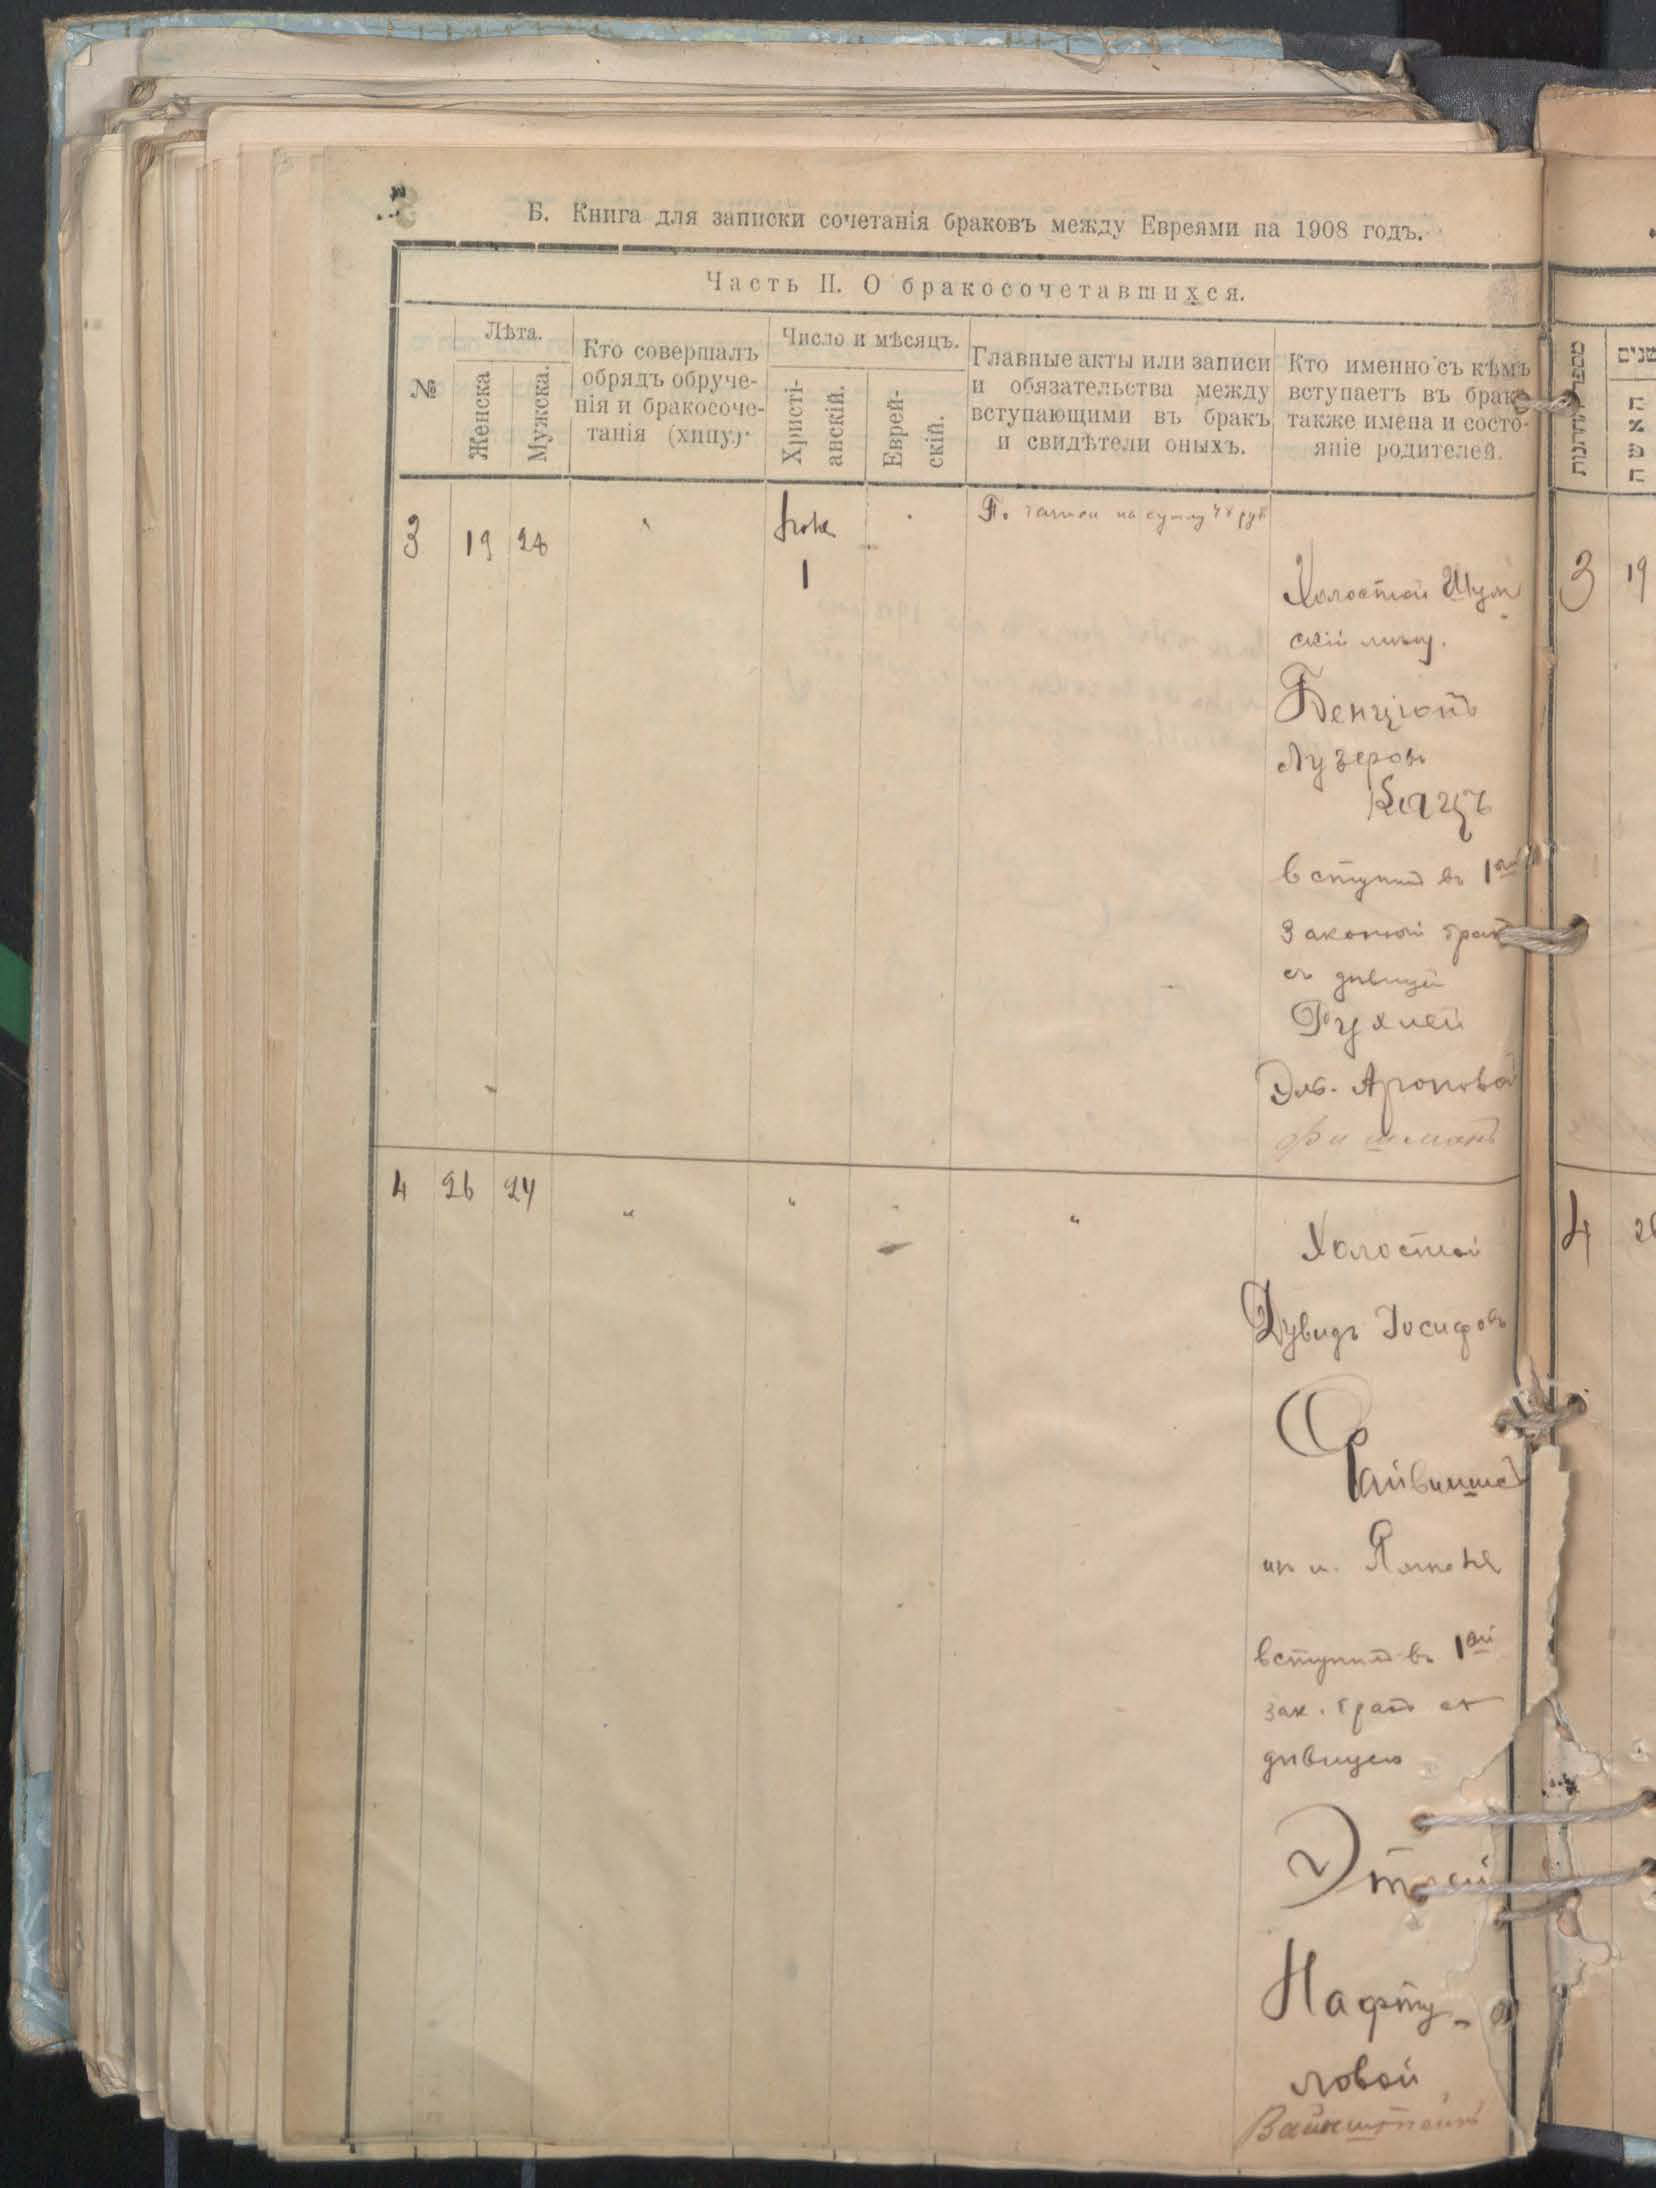 Б. Книга для записки сочетанія браковъ между Евреями на 1908 годъ.
Часть II. О бракосочетавшихся.
№
Лѣта.
Женска
Мужска.
Кто совершалъ
обрядъ обруче-
нія и бракосоче-
танія (хипу).
Число и мѣсяцъ.
Христі-
анскій.
Еврей-
скій.
Главные акты или записи
и обязательства между
вступающими въ бракъ
и свидѣтели оныхъ.
Кто именно съ кѣмъ
вступаетъ въ бракъ
также имена и состо-
яніе родителей.
מספר החתונות
שנים
האשה
3 19 28
1
на сумму 48 руб
Холостой Шум
скій мѣщ.
Бенціонъ
Лузеровъ
Кацъ
вступилъ въ 1ый
законный бракъ
съ дѣвицей
Рухлей
Ароновой
Фишманъ
3 19
4 26 24
Холостой
Дувидъ Іосифовъ
вступилъ въ 1ый
зак. бракъ съ
дѣвицею
Этлей
Нафту-
ловой
Вайнштейнъ
4 26